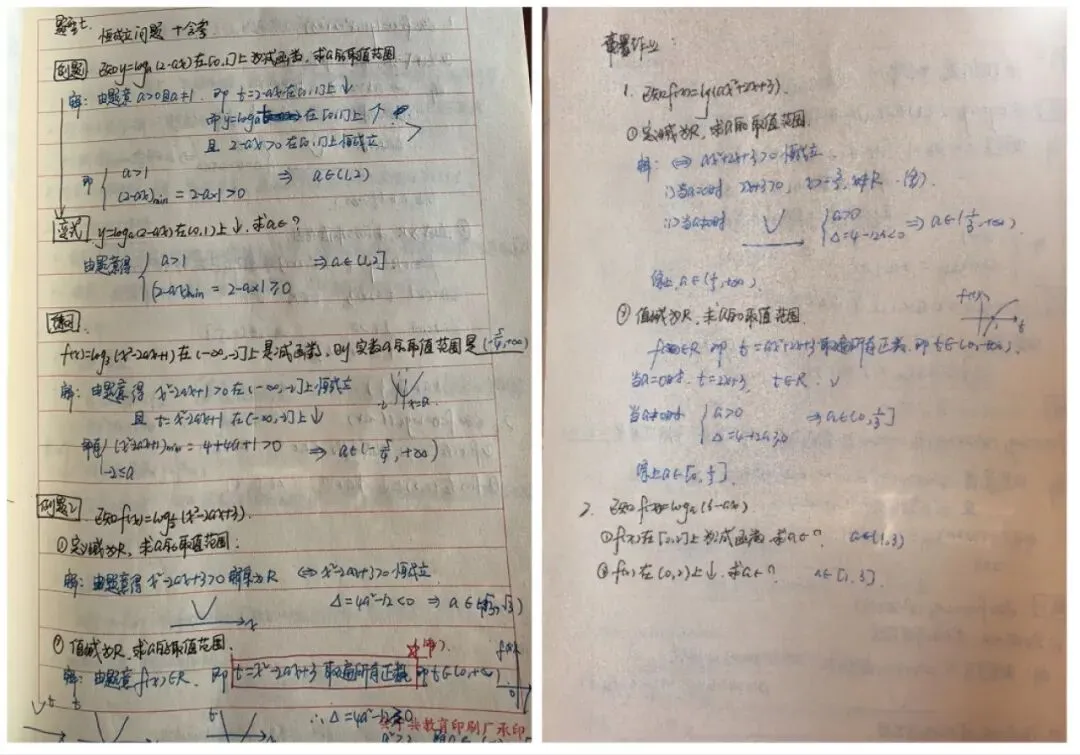 题型七. 恒成立问题 + 含参
例题 已知y=logₐ(2-ax)在[0,1]上为减函数,求a的取值范围.
解:由题意a>0且a≠1. 即 t=2-ax在[0,1]上↓
即y=logₐt在[0,1]上↑
且 2-ax>0在[0,1]上恒成立
即 { a>1 ⇒ a∈(1,2)
(2-ax)min = 2-a×1>0
变式 y=logₐ(2-ax)在(0,1)上↓,求a∈?
由题意得 { a>1 ⇒a∈(1,2]
(2-ax)min = 2-a×1≥0
f(x)=log₃(x²-2ax+1)在(-∞,-2]上是减函数,则实数a的取值范围是(-5/4,+∞)
解:由题意得 x²-2ax+1>0在(-∞,-2]上恒成立
且 t=x²-2ax+1 在(-∞,-2]上↓
-2 x=a
(x²-2ax+1)min = 4+4a+1>0 ⇒ a∈(-5/4,+∞)
-2≤a
例题2 已知f(x)=log½(x²-2ax+3).
①定义域为R,求a的取值范围:
解:由题意得 x²-2ax+3>0 解集为R ⇔ x²-2ax+3>0恒成立
x Δ=4a²-12<0 ⇒ a∈(-√3,√3)
②值域为R,求a的取值范围.
解:由题意f(x)∈R. 即 t=x²-2ax+3 取遍所有正数 即t∈(0,+∞)
f(x)
∴Δ=4a²-12≥0
教育印刷厂承印
布置作业:
1. 已知f(x)=lg(ax²+2x+3).
①定义域为R,求a的取值范围.
解:⇔ ax²+2x+3>0恒成立
i)当a=0时 2x+3>0, x>-3/2, 不为R (舍).
ii)当a≠0时 { a>0 ⇒ a∈(1/3,+∞)
Δ=4-12a<0
综上,a∈(1/3,+∞)
②值域为R,求a的取值范围.
f(x) t
f(x)∈R 即 t=ax²+2x+3 取遍所有正数.即t∈(0,+∞).
当a=0时. t=2x+3, t∈R. √
当a≠0时 { a>0 ⇒a∈(0,1/3]
Δ=4-12a≥0
综上a∈[0,1/3].
2. 已知f(x)=logₐ(6-ax)
①f(x)在[0,2]上为减函数,求a∈? a∈(1,3)
②f(x)在(0,2)上↓,求a∈? a∈(1,3].